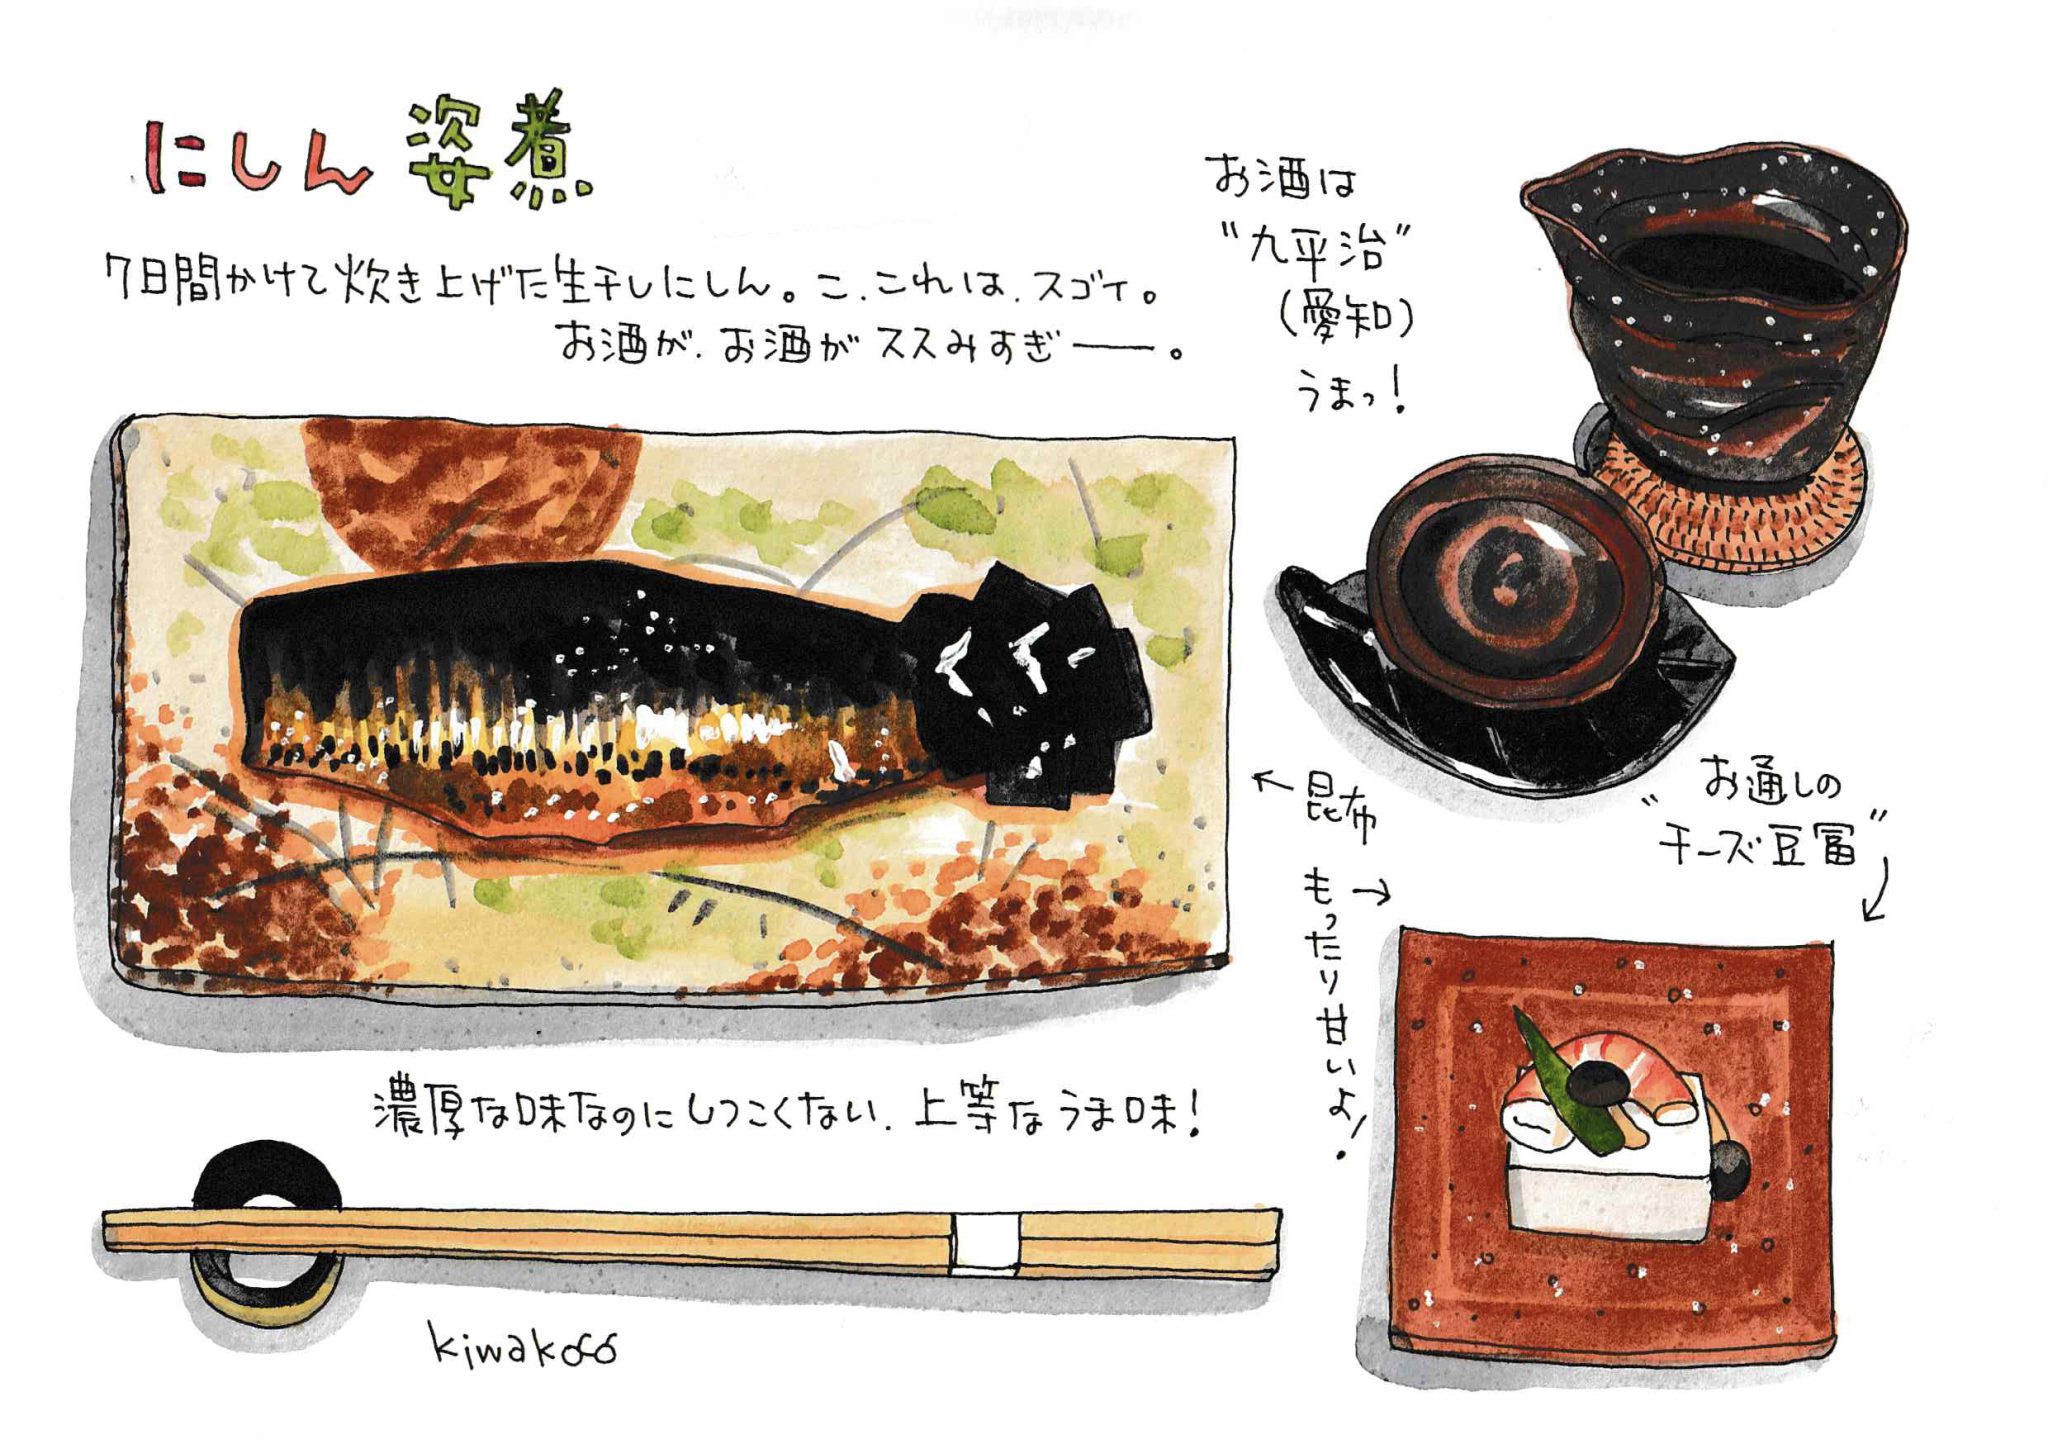 にしん姿煮
7日間かけて炊き上げた生干しにしん。こ、これは、スゴイ。
お酒が、お酒がススみすぎ——。
お酒は
"九平治"
(愛知)
うまっ!
←昆布
お通しの
"チーズ豆冨"
もったり甘いよ!
濃厚な味なのにしつこくない、上等なうま味!
kiwakoco